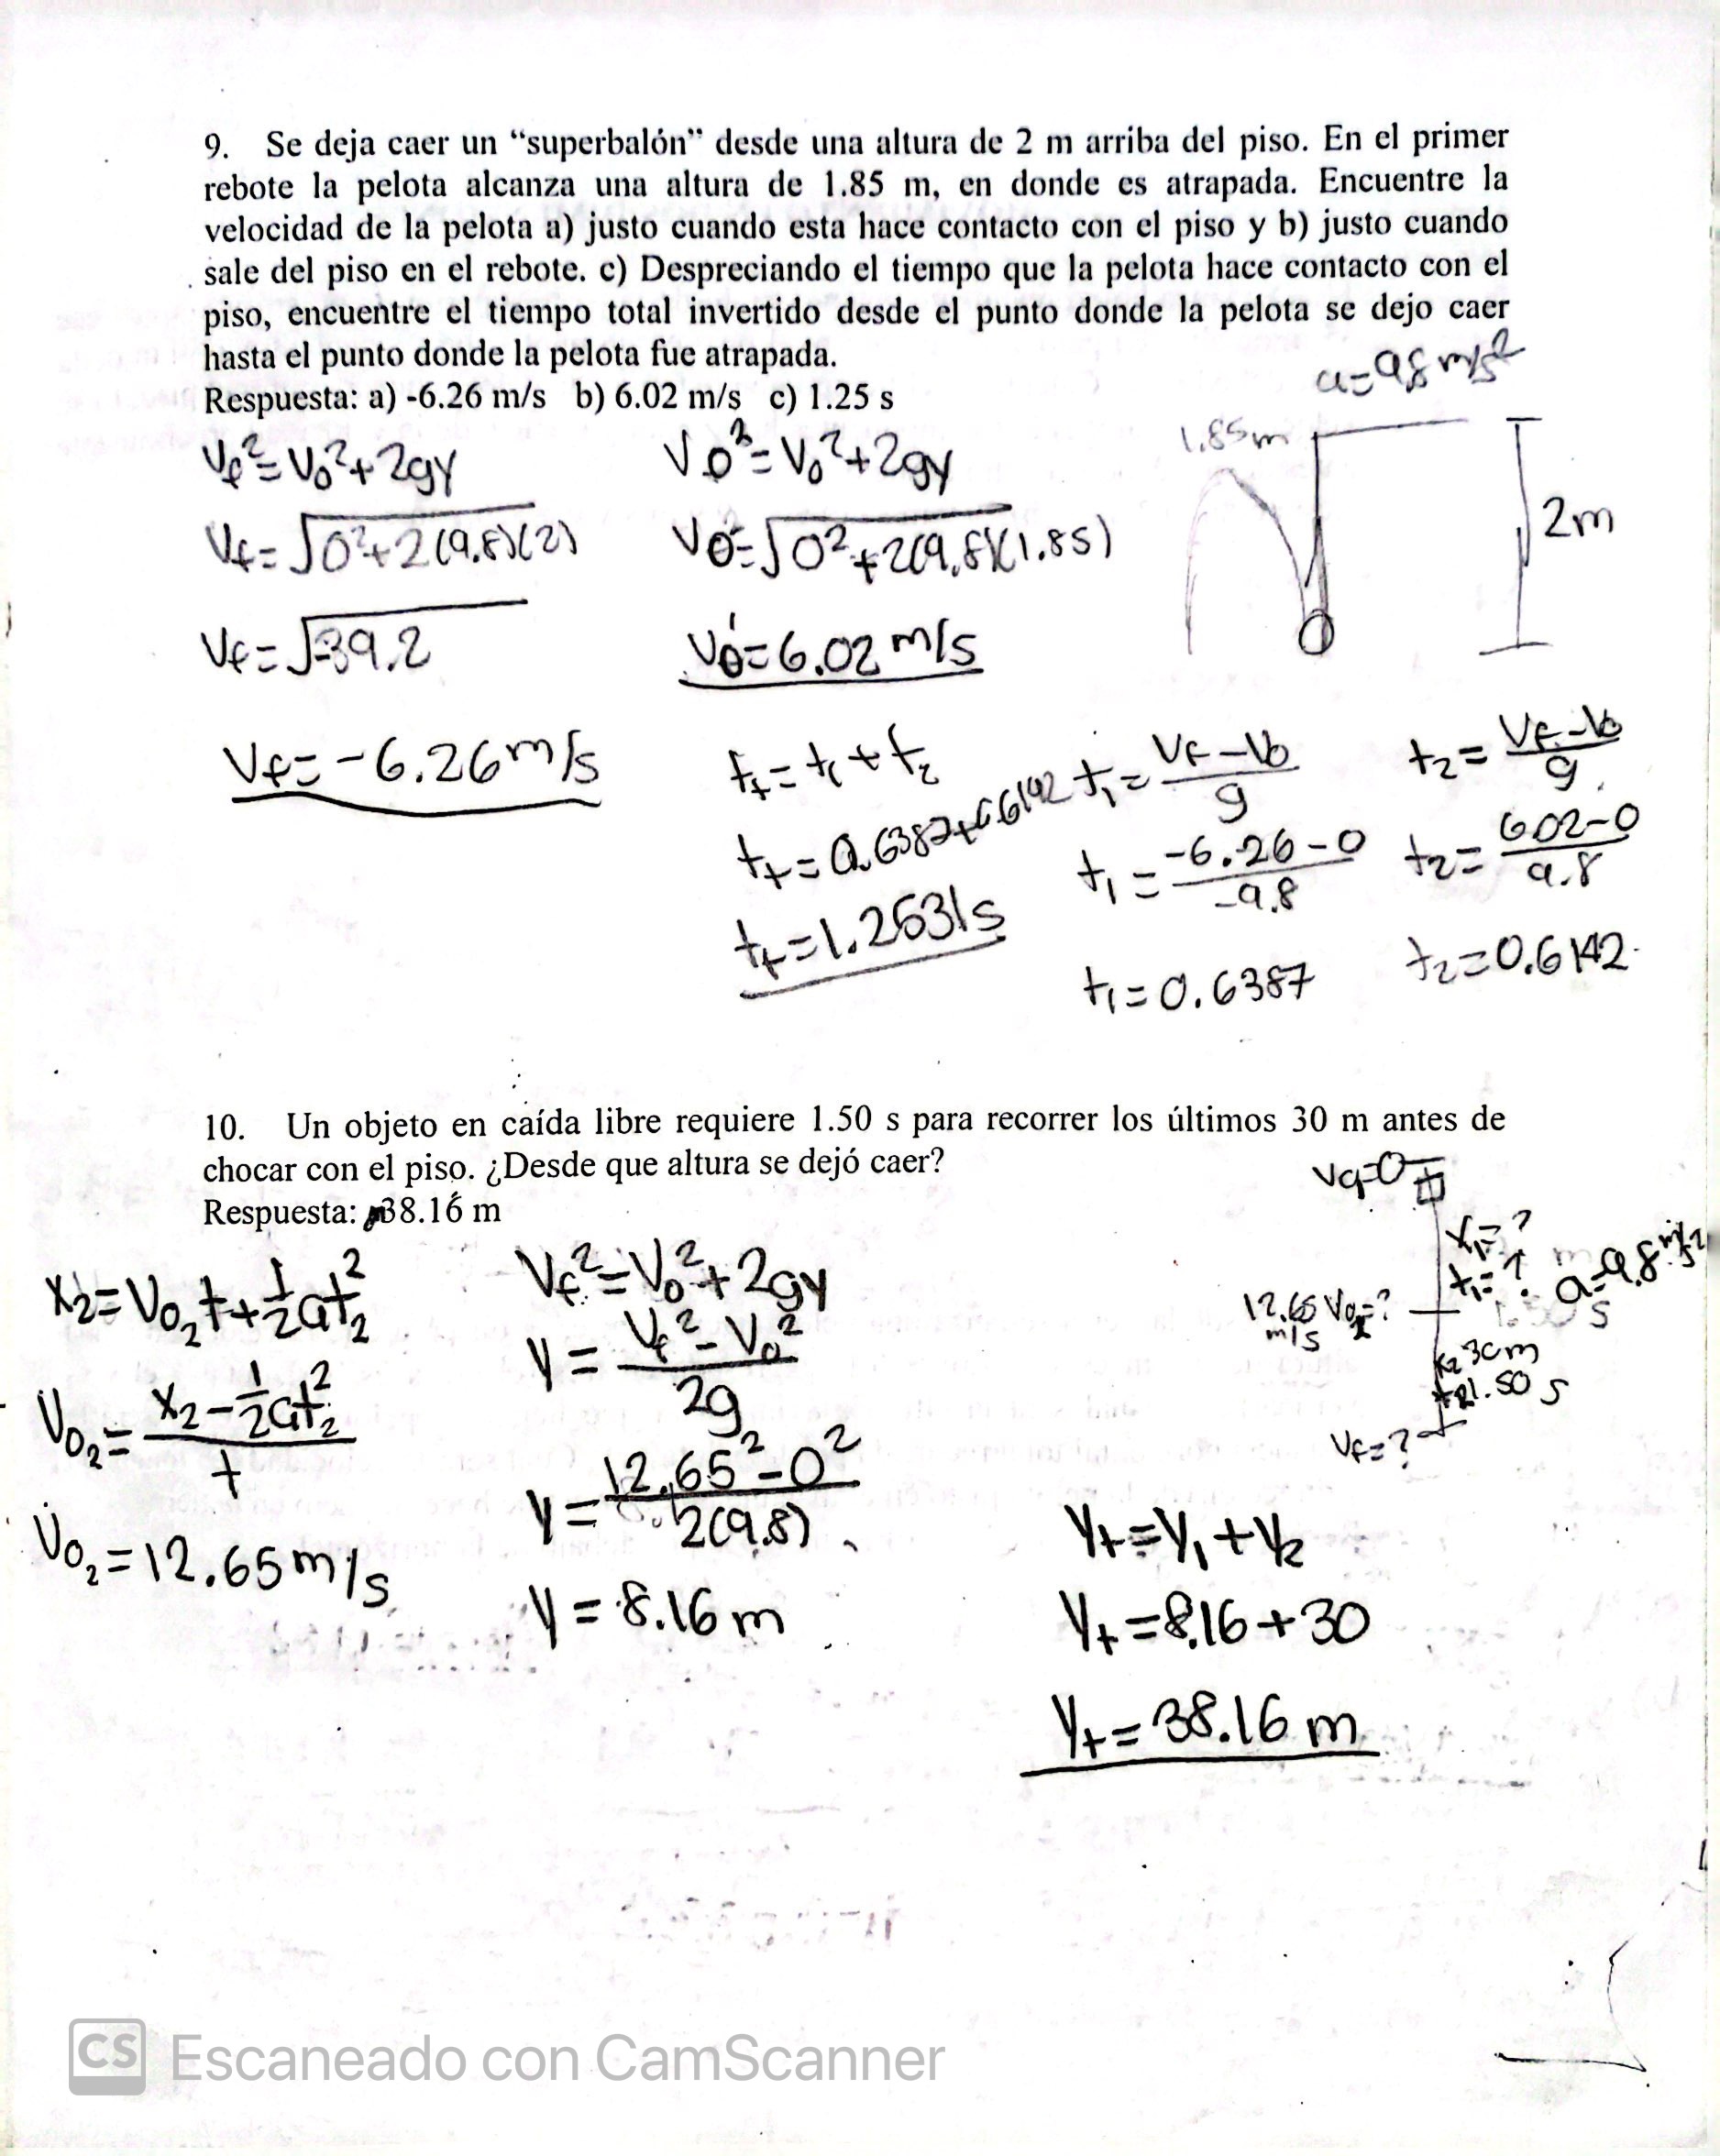 9. Se deja caer un “superbalón” desde una altura de 2 m arriba del piso. En el primer
rebote la pelota alcanza una altura de 1.85 m, en donde es atrapada. Encuentre la
velocidad de la pelota a) justo cuando esta hace contacto con el piso y b) justo cuando
sale del piso en el rebote. c) Despreciando el tiempo que la pelota hace contacto con el
piso, encuentre el tiempo total invertido desde el punto donde la pelota se dejo caer
hasta el punto donde la pelota fue atrapada.
Respuesta: a) -6.26 m/s b) 6.02 m/s c) 1.25 s
a=9.8 m/s²
1.85m
2m
Vf²=V₀²+2gy
Vf=√0²+2(9.8)(2)
Vf=√-39.2
Vf=-6.26 m/s
V₀²=V₀²+2gy
V₀=√0²+2(9.8)(1.85)
V₀=6.02 m/s
t_t=t₁+t₂
t_t=0.6387+0.6142
t_t=1.2531s
t₁=(Vf-V₀)/g
t₁=(-6.26-0)/-9.8
t₁=0.6387
t₂=(Vf-V₀)/g
t₂=(6.02-0)/9.8
t₂=0.6142
10. Un objeto en caída libre requiere 1.50 s para recorrer los últimos 30 m antes de
chocar con el piso. ¿Desde que altura se dejó caer?
Respuesta: 38.16 m
X₂=V₀₂t+½at₂²
V₀₂=(X₂-½at₂²)/t
V₀₂=12.65 m/s
Vf²=V₀²+2gy
y=(Vf²-V₀²)/2g
y=(12.65²-0²)/2(9.8)
y=8.16 m
X₁=?
t₁=?
a=9.8 m/s²
12.65 m/s V₀₂=?
X₂ 30m
t₂1.50 s
Vf=?
y_t=y₁+y₂
y_t=8.16+30
y_t=38.16 m
CS Escaneado con CamScanner